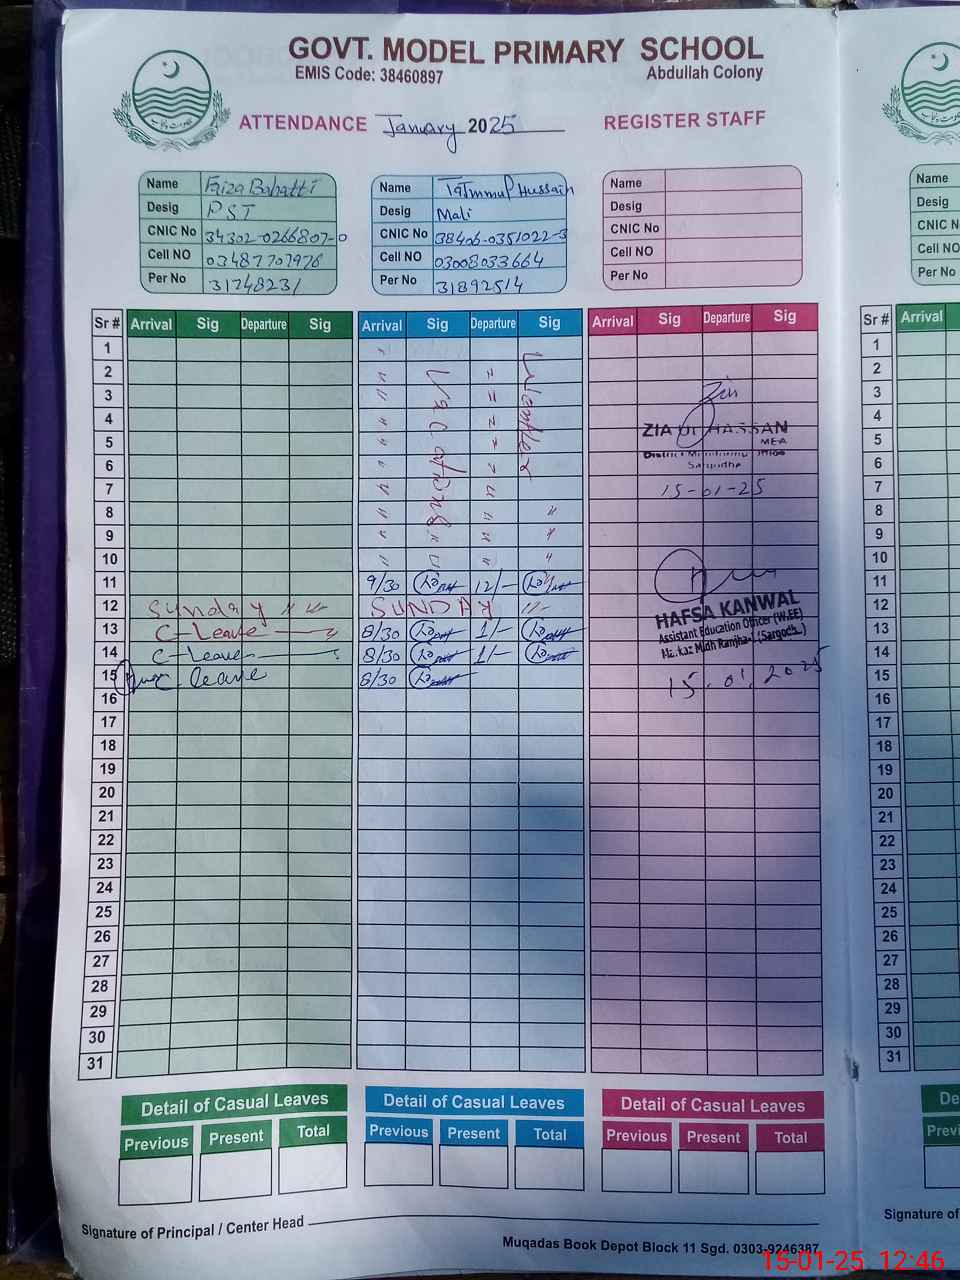 GOVT. MODEL PRIMARY SCHOOL
EMIS Code: 38460897
Abdullah Colony
ATTENDANCE January 2025 REGISTER STAFF
Name Faiza Bahatti
Desig PST
CNIC No 34302-0266807-0
Cell NO 03487707976
Per No 31748231
Name Tatmmul Hussain
Desig Mali
CNIC No 38406-0351022-3
Cell NO 03008033664
Per No 31892514
Name
Desig
CNIC No
Cell NO
Per No
Name
Desig
CNIC No
Cell NO
Per No
Sr # Arrival Sig Departure Sig Arrival Sig Departure Sig Arrival Sig Departure Sig
Sr # Arrival
Winter
Vacations
1 1
2 2
3 3
4 4
5 5
6 6
7 7
8 8
9 9
10 10
11 9/30 12/- 11
12 Sunday " " SUNDAY "- 12
13 C-Leave 8/30 1/- 13
14 C-Leave 8/30 1/- 14
15 C leave 8/30 15
16 16
17 17
18 18
19 19
20 20
21 21
22 22
23 23
24 24
25 25
26 26
27 27
28 28
29 29
30 30
31 31
ZIA UL HASSAN
MEA
District Monitoring Office
Sargodha
15-01-25
HAFSA KANWAL
Assistant Education Officer (W.EE)
Markaz Midh Ranjha-I (Sargodha)
15.01.2025
Detail of Casual Leaves
Previous Present Total
Detail of Casual Leaves
Previous Present Total
Detail of Casual Leaves
Previous Present Total
De
Previ
Signature of Principal / Center Head
Signature of
Muqadas Book Depot Block 11 Sgd. 0303-9246387
15-01-25 12:46